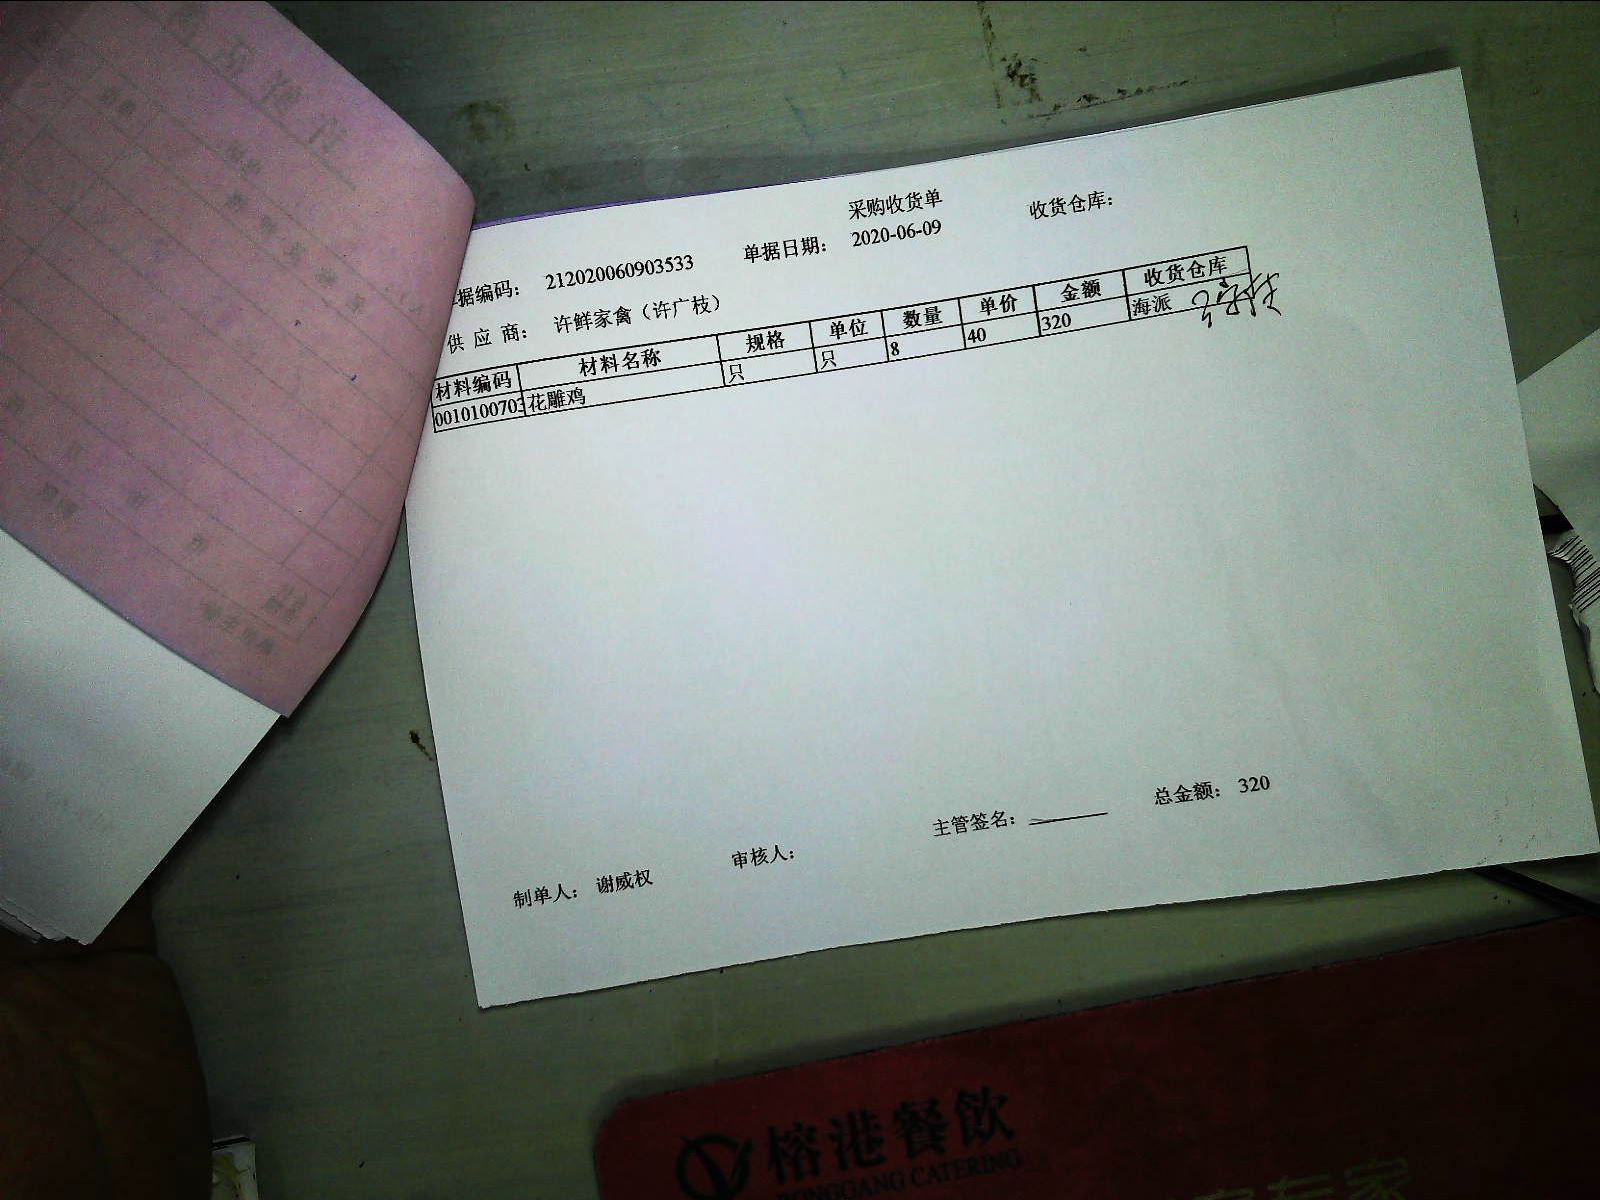 采购收货单
据编码： 212020060903533 单据日期： 2020-06-09 收货仓库：
供 应 商： 许鲜家禽（许广枝）
材料编码 材料名称 规格 单位 数量 单价 金额 收货仓库
0010100703 花雕鸡 只 只 8 40 320 海派
主管签名： 总金额： 320
制单人： 谢威权 审核人：
榕港餐飲
RONGGANG CATERING